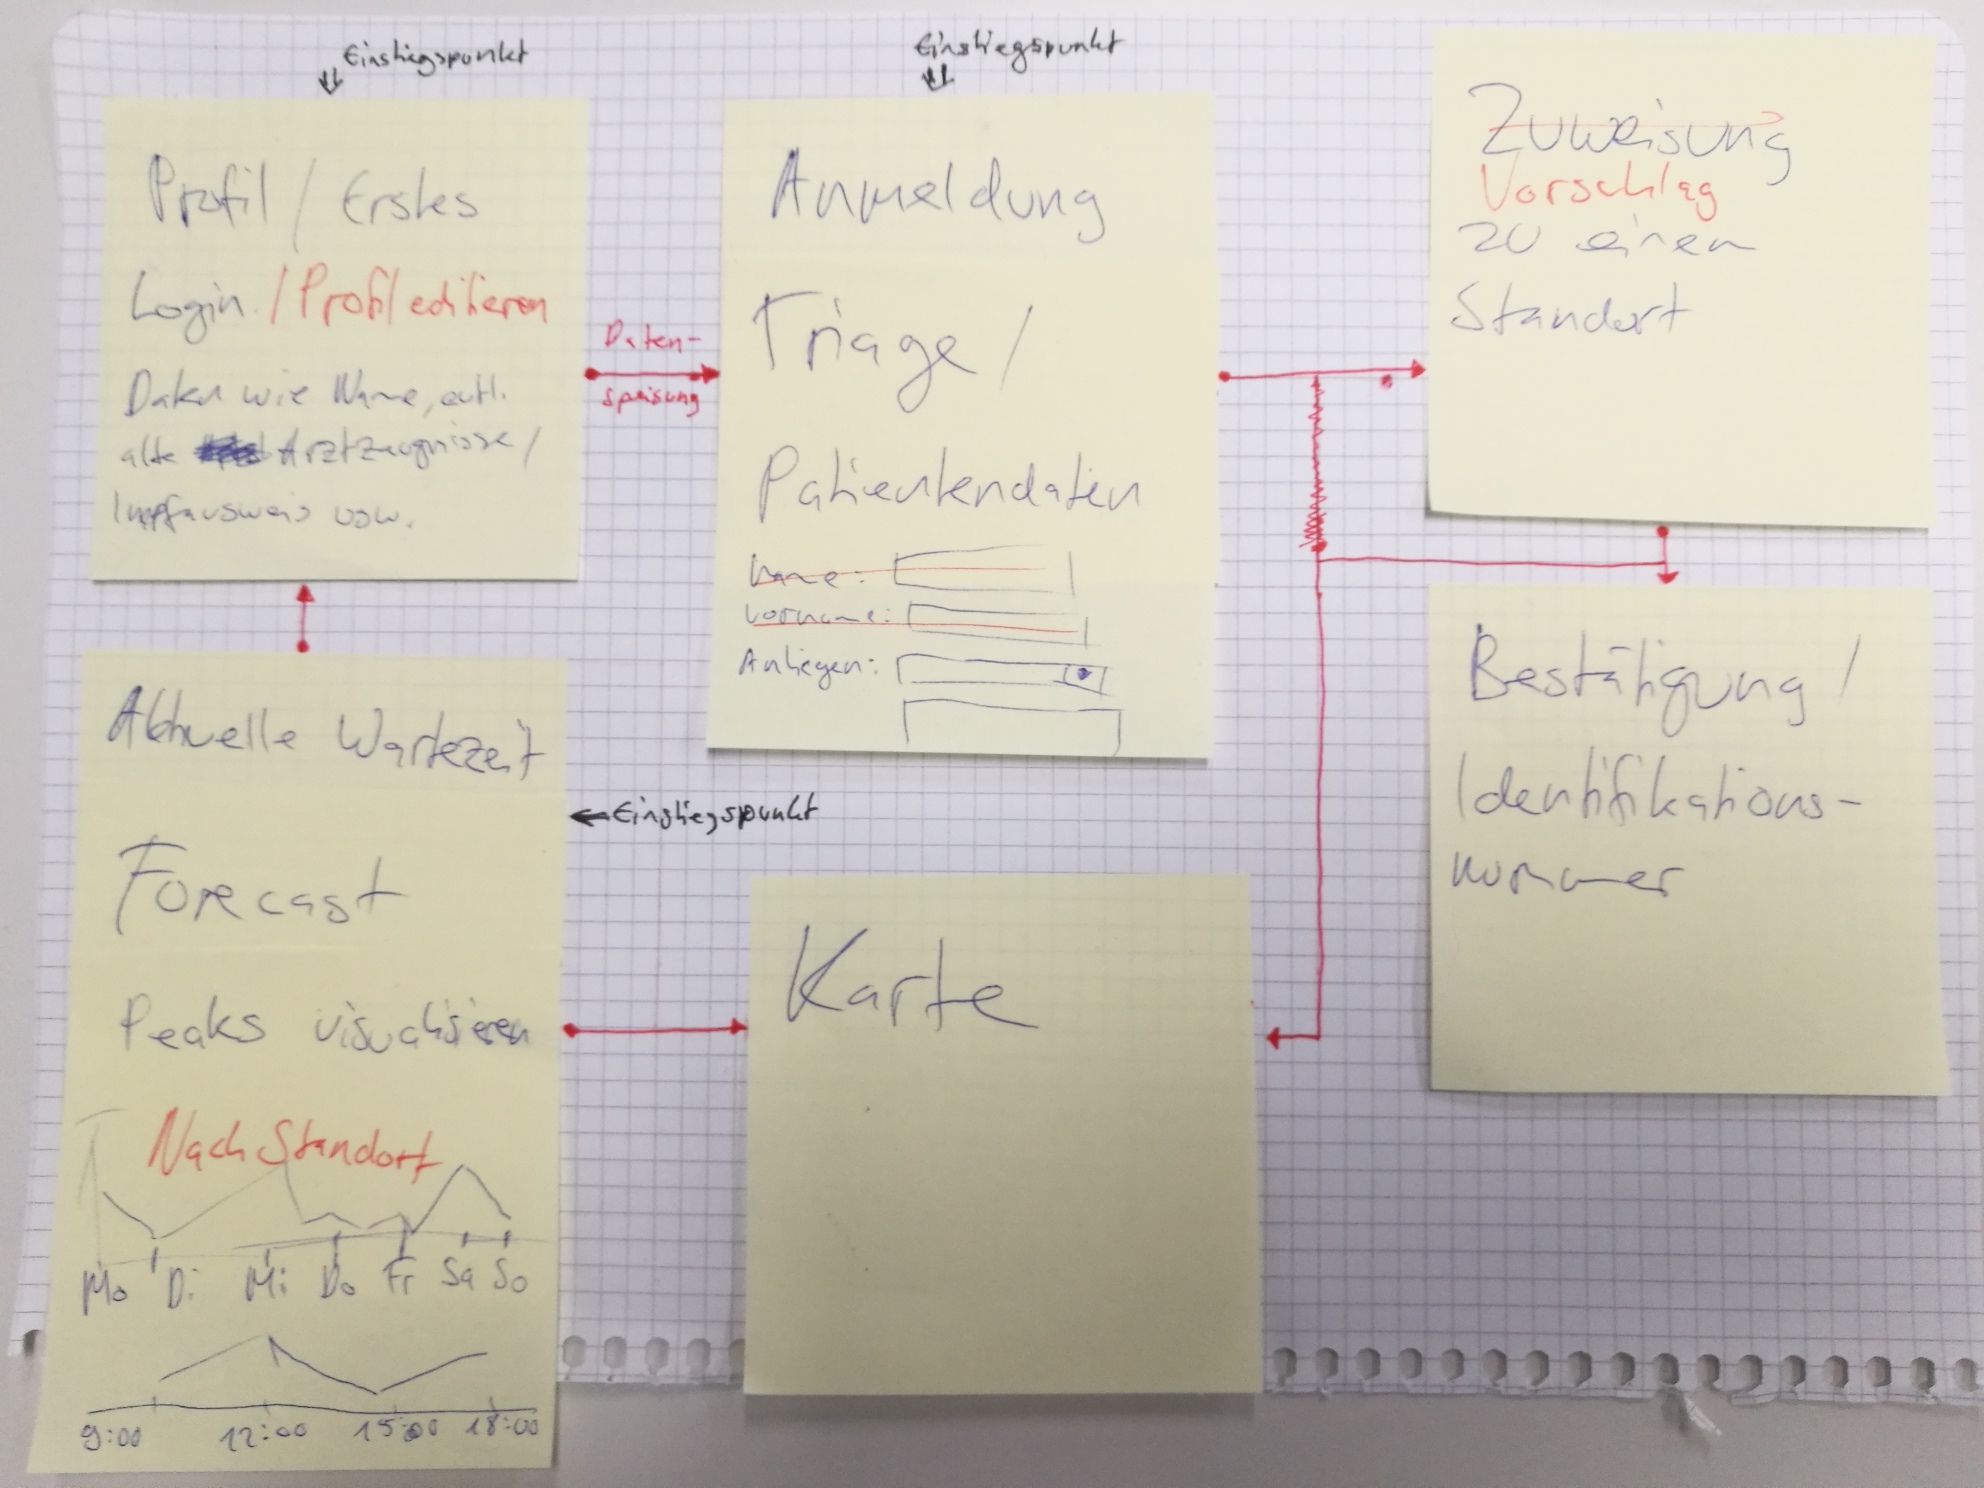 Einstiegspunkt
Profil / Erstes
Login / Profil editieren
Daten wie Name, evtl.
alte Arztzeugnisse /
Impfausweis usw.
Daten-
speisung
Einstiegspunkt
Anmeldung
Triage /
Patientendaten
Name:
Vorname:
Anliegen:
Zuweisung
Vorschlag
zu einem
Standort
Bestätigung /
Identifikations-
nummer
Aktuelle Wartezeit
Einstiegspunkt
Forecast
Peaks visualisieren
Nach Standort
Mo Di Mi Do Fr Sa So
9:00 12:00 15:00 18:00
Karte